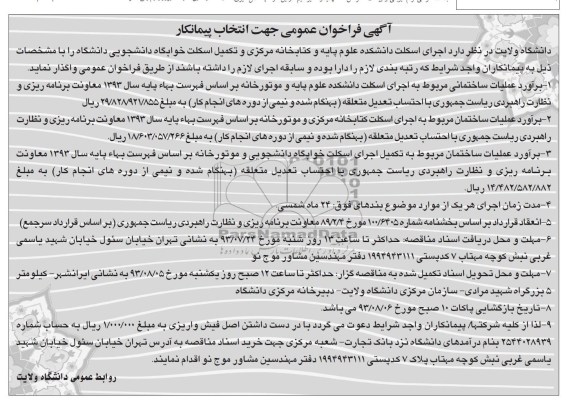 آگهی فراخوان عمومی جهت انتخاب پیمانکار
دانشگاه ولایت در نظر دارد اجرای اسکلت دانشکده علوم پایه و کتابخانه مرکزی و تکمیل اسکلت خوابگاه دانشجویی دانشگاه را با مشخصات
ذیل به پیمانکاران واجد شرایط که رتبه بندی لازم را دارا بوده و سابقه اجرای لازم را داشته باشند از طریق فراخوان عمومی واگذار نماید.
۱-برآورد عملیات ساختمانی مربوط به اجرای اسکلت دانشکده علوم پایه و موتورخانه بر اساس فهرست بهاء پایه سال ۱۳۹۳ معاونت برنامه ریزی و
نظارت راهبردی ریاست جمهوری با احتساب تعدیل متعلقه (بهنگام شده و نیمی از دوره های انجام کار) به مبلغ ۲۹/۸۲۸/۹۲۱/۸۵۵ ریال.
۲-برآورد عملیات ساختمان مربوط به اجرای اسکلت کتابخانه مرکزی و موتورخانه بر اساس فهرست بهاء پایه سال ۱۳۹۳ معاونت برنامه ریزی و نظارت
راهبردی ریاست جمهوری با احتساب تعدیل متعلقه (بهنگام شده و نیمی از دوره های انجام کار) به مبلغ ۱۸/۶۰۳/۰۵۷/۲۶۶ ریال.
۳-برآورد عملیات ساختمان مربوط به تکمیل اجرای اسکلت خوابگاه دانشجویی و موتورخانه بر اساس فهرست بهاء پایه سال ۱۳۹۳ معاونت
برنامه ریزی و نظارت راهبردی ریاست جمهوری با احتساب تعدیل متعلقه (بهنگام شده و نیمی از دوره های انجام کار) به مبلغ
۱۴/۴۸۲/۵۸۲/۸۸۲ ریال.
۴-مدت زمان اجرای هر یک از موارد موضوع بندهای فوق: ۲۴ ماه شمسی
۵-انعقاد قرارداد بر اساس بخشنامه شماره ۱۰۰/۶۴۰۵ مورخ ۸۹/۲/۴ معاونت برنامه ریزی و نظارت راهبردی ریاست جمهوری (بر اساس قرارداد سرجمع)
۶-مهلت و محل دریافت اسناد مناقصه: حداکثر تا ساعت ۱۳ روز شنبه مورخ ۹۳/۰۷/۲۳ به نشانی تهران خیابان سئول خیابان شهید یاسمی
غربی نبش کوچه مهتاب ۷ کدپستی ۱۹۹۴۹۴۳۱۱۱ دفتر مهندسین مشاور موج نو
۷-مهلت و محل تحویل اسناد تکمیل شده به مناقصه گزار: حداکثر تا ساعت ۱۲ صبح روز یکشنبه مورخ ۹۳/۰۸/۰۵ به نشانی ایرانشهر- کیلومتر
۵ بزرگراه شهید مرادی- سازمان مرکزی دانشگاه ولایت- دبیرخانه مرکزی دانشگاه
۸-تاریخ بازگشایی پاکات ۱۰ صبح مورخ ۹۳/۰۸/۰۶ می باشد.
۹-لذا از کلیه شرکتها، پیمانکاران واجد شرایط دعوت می گردد با در دست داشتن اصل فیش واریزی به مبلغ ۱/۰۰۰/۰۰۰ ریال به حساب شماره
۲۵۴۴۰۲۸۹۳۹ بنام درآمدهای دانشگاه نزد بانک تجارت- شعبه مرکزی جهت خرید اسناد مناقصه به آدرس تهران خیابان سئول خیابان شهید
یاسمی غربی نبش کوچه مهتاب پلاک ۷ کدپستی ۱۹۹۴۹۴۳۱۱۱ دفتر مهندسین مشاور موج نو اقدام نمایند.
روابط عمومی دانشگاه ولایت